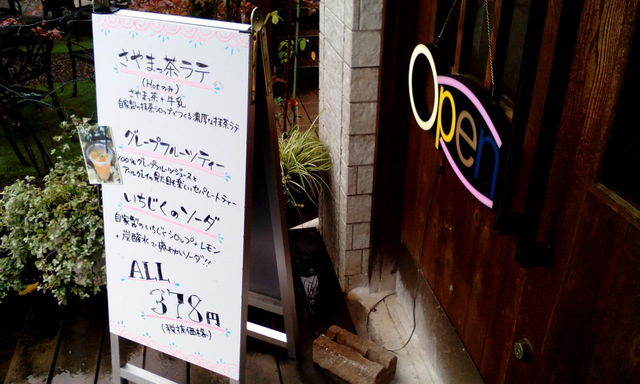 さやまっ茶ラテ
(Hotのみ)
さやまっ茶+牛乳
自家製の抹茶シロップでつくる濃厚な抹茶ラテ
グレープフルーツティー
100%グレープフルーツジュースと
アールグレイの見た目も楽しいセパレートティー
いちじくのソーダ
自家製のいちじくシロップ+レモン
+炭酸水で爽やかソーダ!!
ALL
378円
(税抜価格)
Open